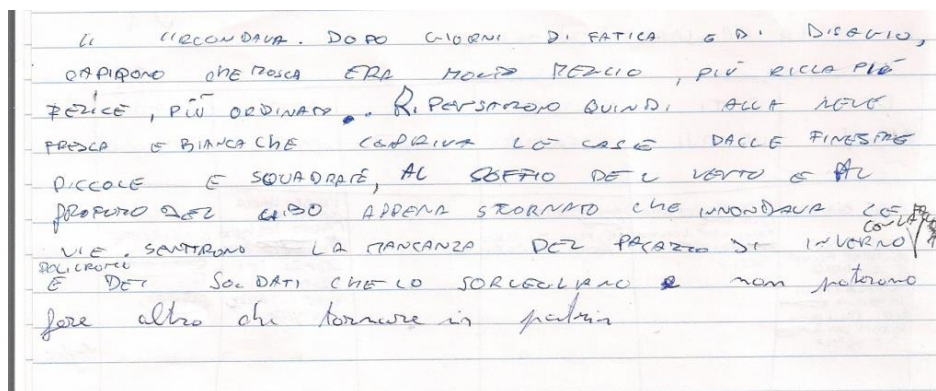 LI CIRCONDAVA. DOPO GIORNI DI FATICA E DI DISAGIO,
CAPIRONO CHE MOSCA ERA MOLTO MEGLIO, PIÙ RICCA PIÙ
FELICE, PIÙ ORDINATA. RIPENSARONO QUINDI ALLA NEVE
FRESCA E BIANCA CHE COPRIVA LE CASE DALLE FINESTRE
PICCOLE E SQUADRATE, AL SOFFIO DEL VENTO E AL
PROFUMO DEL CIBO APPENA SFORNATO CHE INNONDAVA LE
CON LA
VIE. SENTIRONO LA MANCANZA DEL PALAZZO DI INVERNO
POLICROMO
E DEI SOLDATI CHE LO SORVEGLIANO e non poterono
fare altro che tornare in patria